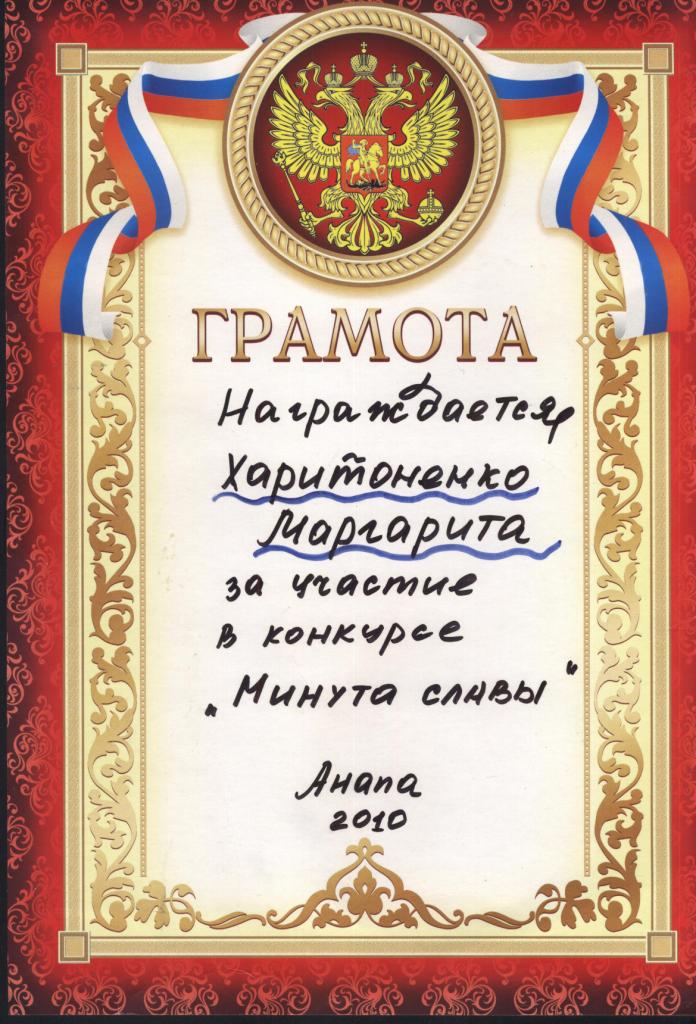 ГРАМОТА
Награждается
Харитоненко
Маргарита
за участие
в конкурсе
„Минута славы"
Анапа
2010